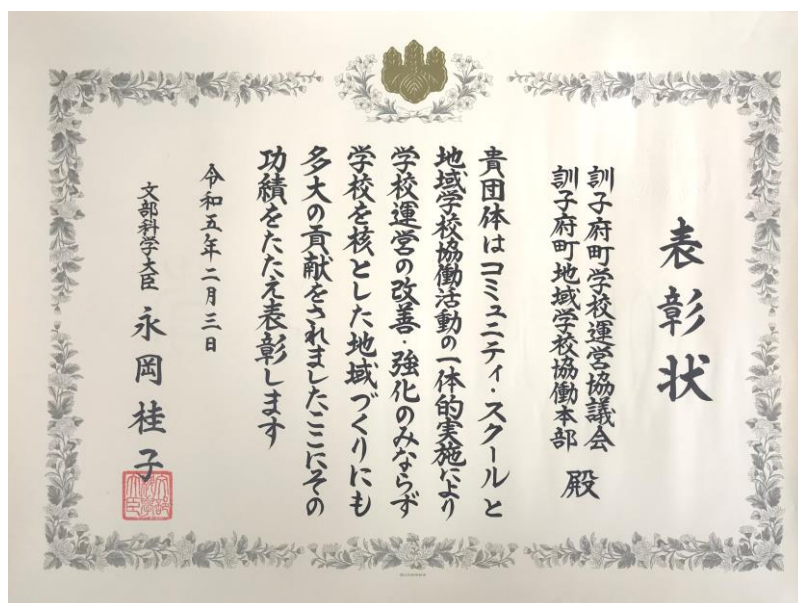 表彰状
訓子府町学校運営協議会
訓子府町地域学校協働本部
殿
貴団体はコミュニティ・スクールと
地域学校協働活動の一体的実施により
学校運営の改善・強化のみならず
学校を核とした地域づくりにも
多大の貢献をされましたここにその
功績をたたえ表彰します
令和五年二月三日
文部科学大臣 永岡桂子